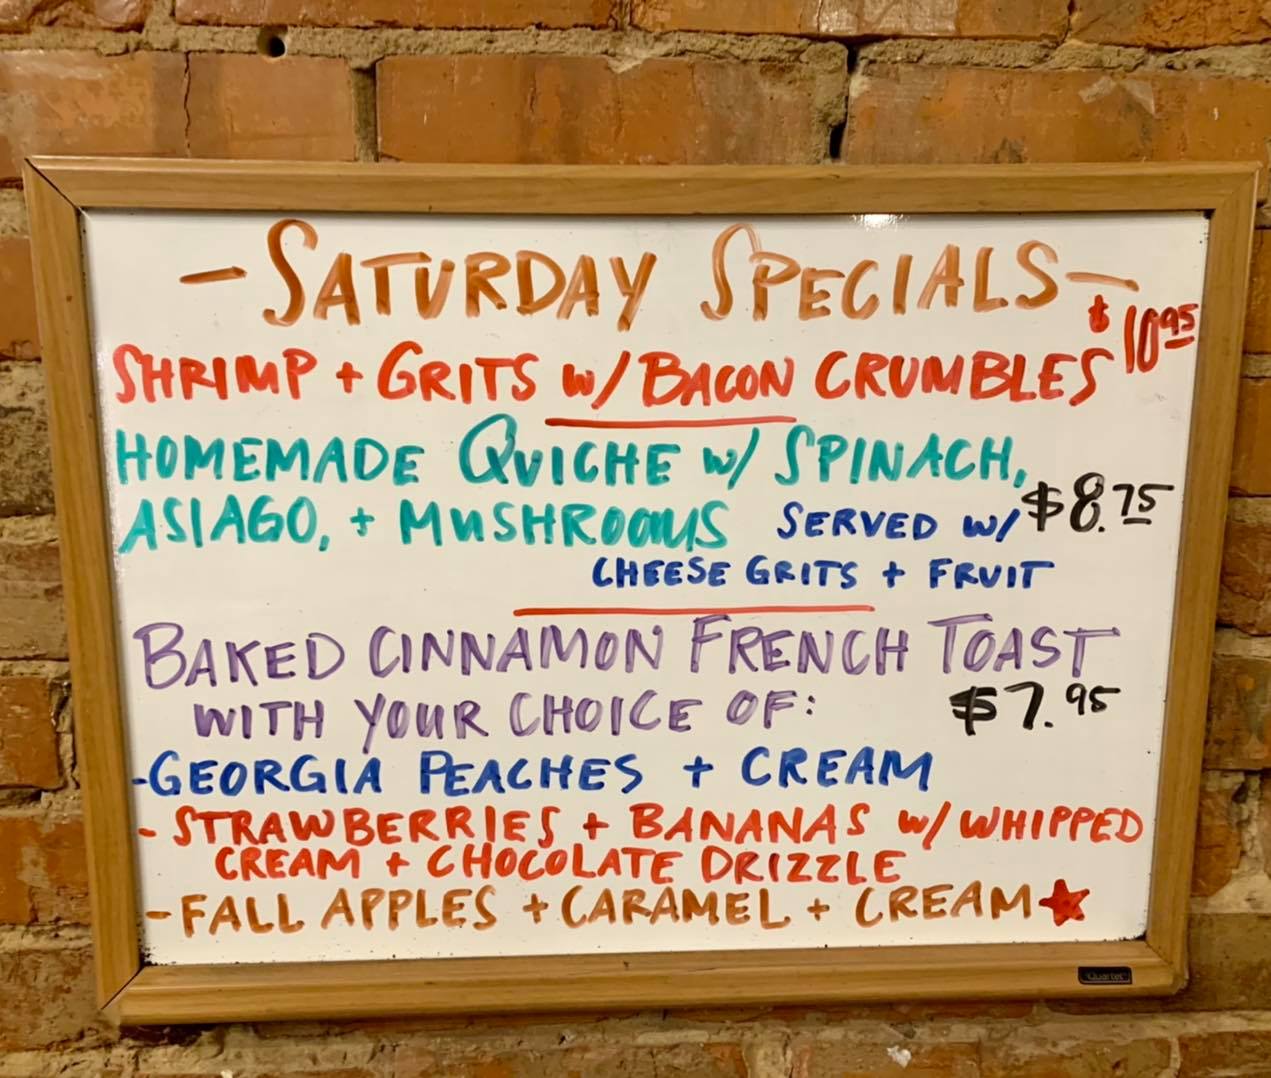 -SATURDAY SPECIALS-
$10.95
SHRIMP + GRITS w/ BACON CRUMBLES
HOMEMADE QUICHE w/ SPINACH,
ASIAGO, + MUSHROOMS SERVED w/ $8.75
CHEESE GRITS + FRUIT
BAKED CINNAMON FRENCH TOAST
WITH YOUR CHOICE OF: $7.95
-GEORGIA PEACHES + CREAM
- STRAWBERRIES + BANANAS w/ WHIPPED
CREAM + CHOCOLATE DRIZZLE
- FALL APPLES + CARAMEL + CREAM★
Quartet